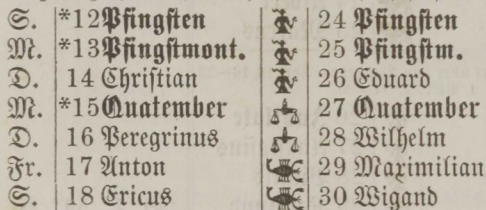 S. *12 Pfingsten 24 Pfingsten
M. *13 Pfingstmont. 25 Pfingstm.
D. 14 Christian 26 Eduard
M. *15 Quatember 27 Quatember
D. 16 Peregrinus 28 Wilhelm
Fr. 17 Anton 29 Maximilian
S. 18 Ericus 30 Wigand